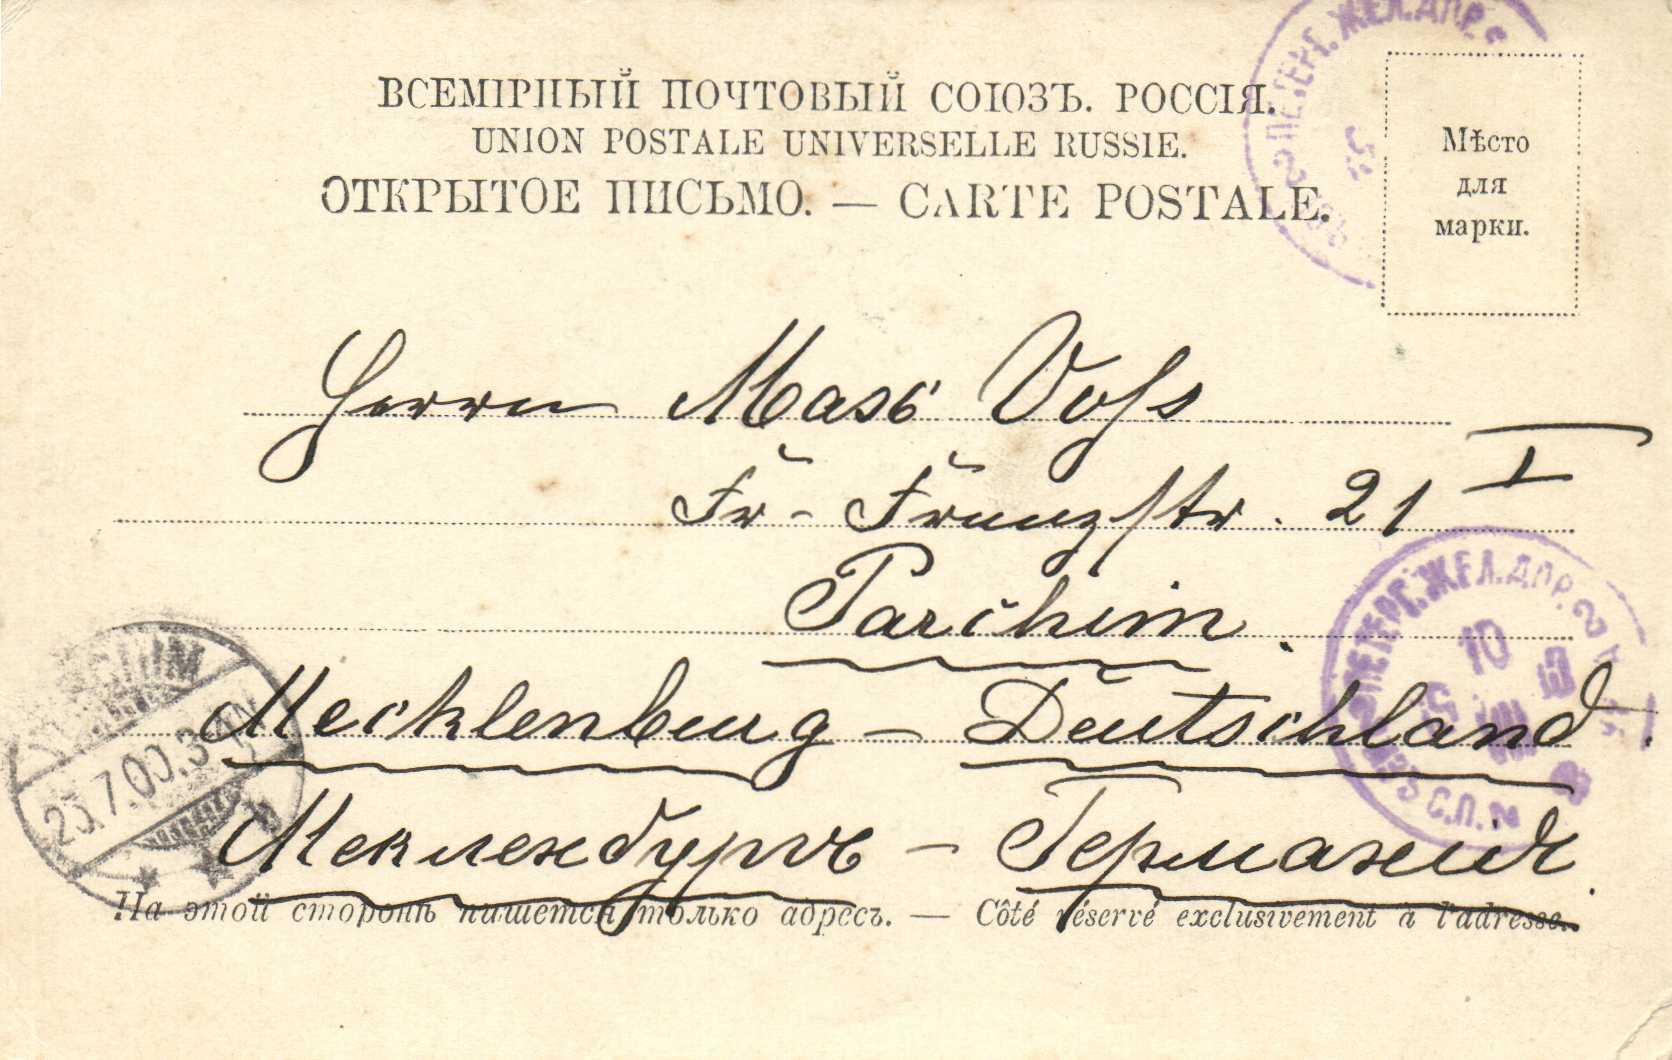 ВСЕМІРНЫЙ ПОЧТОВЫЙ СОЮЗЪ. РОССІЯ.
UNION POSTALE UNIVERSELLE RUSSIE.
ОТКРЫТОЕ ПИСЬМО. — CARTE POSTALE.
Мѣсто
для
марки.
ПЕТЕРГ. ЖЕЛ. ДОР.
Herrn Max Voss
Fr-Franzstr. 21 I
Parchim.
Mecklenburg - Deutschland.
Мекленбургъ - Германія.
ПЕТЕРГ. ЖЕЛ. ДОР.
10
С.П.
25.7.00.3
На этой сторонѣ пишется только адресъ. — Côté réservé exclusivement à l'adresse.